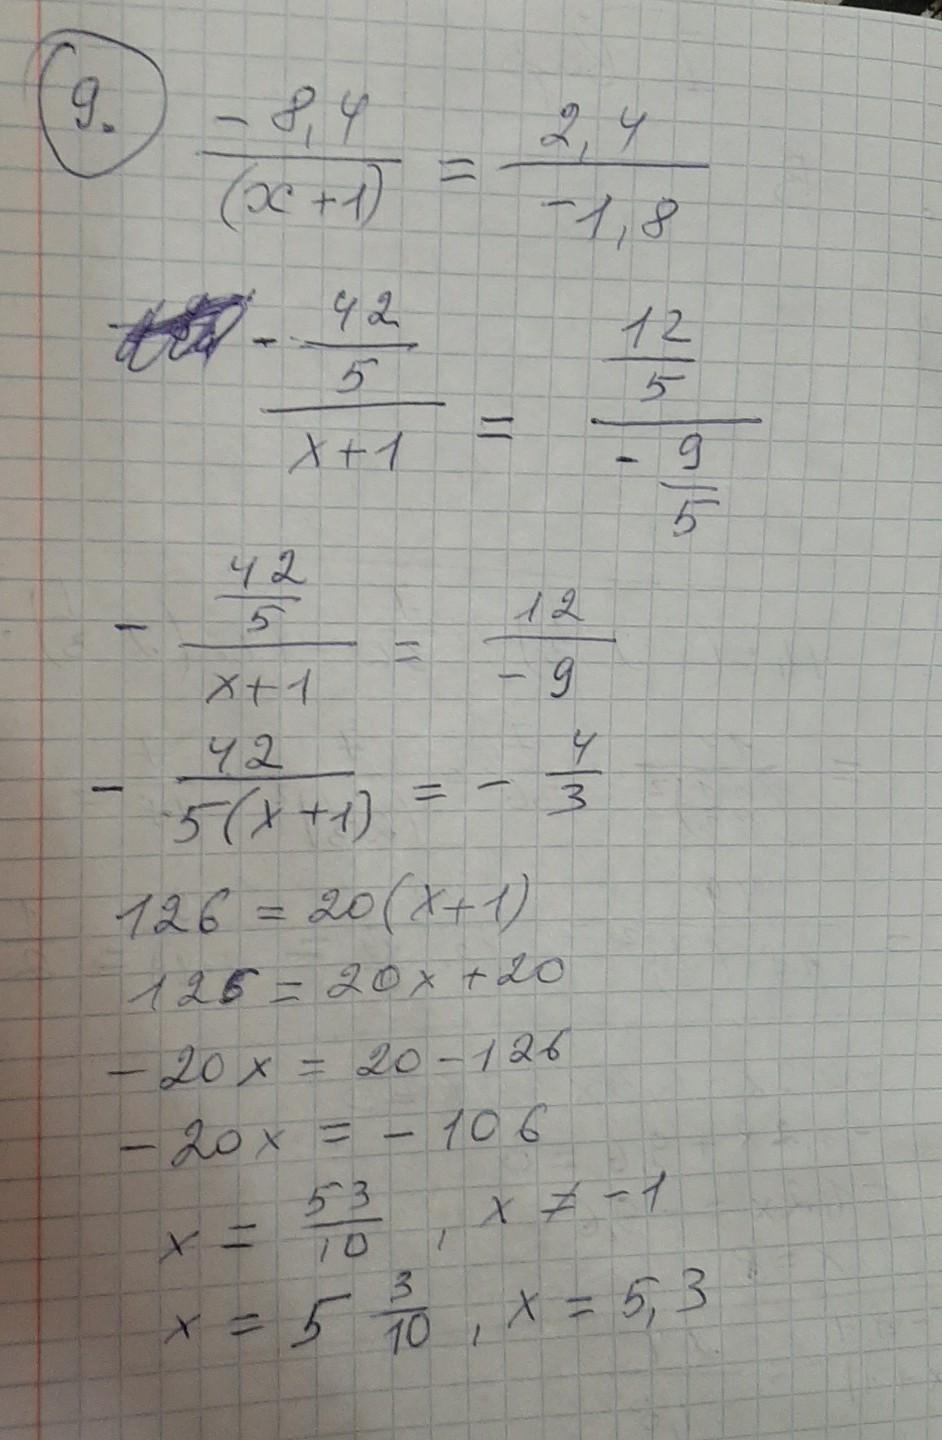 9. -8,4/(x+1) = 2,4/-1,8
- (42/5)/(x+1) = (12/5)/(-9/5)
- (42/5)/(x+1) = 12/-9
- 42/5(x+1) = - 4/3
126 = 20(x+1)
126 = 20x+20
-20x = 20-126
-20x = -106
x = 53/10 , x ≠ -1
x = 5 3/10 , x = 5,3